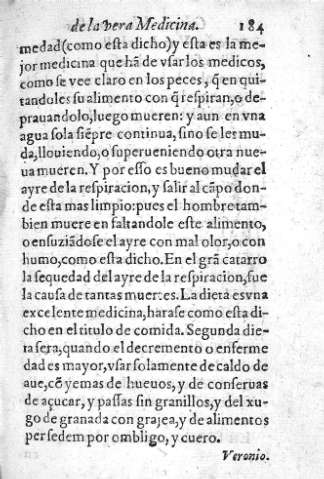 de la vera Medicina. 184
medad(como esta dicho)y esta es la me-
jor medicina que hã de vsar los medicos,
como se vee claro en los peces, q̃ en qui-
tandoles su alimento con q̃ respiran, o de-
prauandolo, luego mueren: y aun en vna
agua sola siẽpre continua, sino se les mu-
da, llouiendo, o superueniendo otra nue-
ua mueren. Y por esso es bueno mudar el
ayre de la respiracion, y salir al cãpo don-
de esta mas limpio: pues el hombre tam-
bien muere en faltandole este alimento,
o ensuziãdose el ayre con mal olor, o con
humo, como esta dicho. En el grã catarro
la sequedad del ayre de la respiracion, fue
la causa de tantas muertes. La dieta es vna
excelente medicina, harase como esta di-
cho en el titulo de comida. Segunda die-
ta sera, quando el decremento o enferme
dad es mayor, vsar solamente de caldo de
aue, cõ yemas de hueuos, y de conseruas
de açucar, y passas sin granillos, y del xu-
go de granada con grajea, y de alimentos
per sedem por ombligo, y cuero.
Veronio.